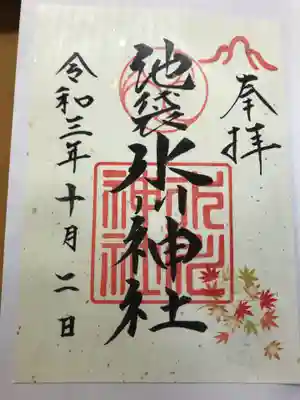 奉拝
池袋氷川神社
氷川
神社
令和三年十月二日